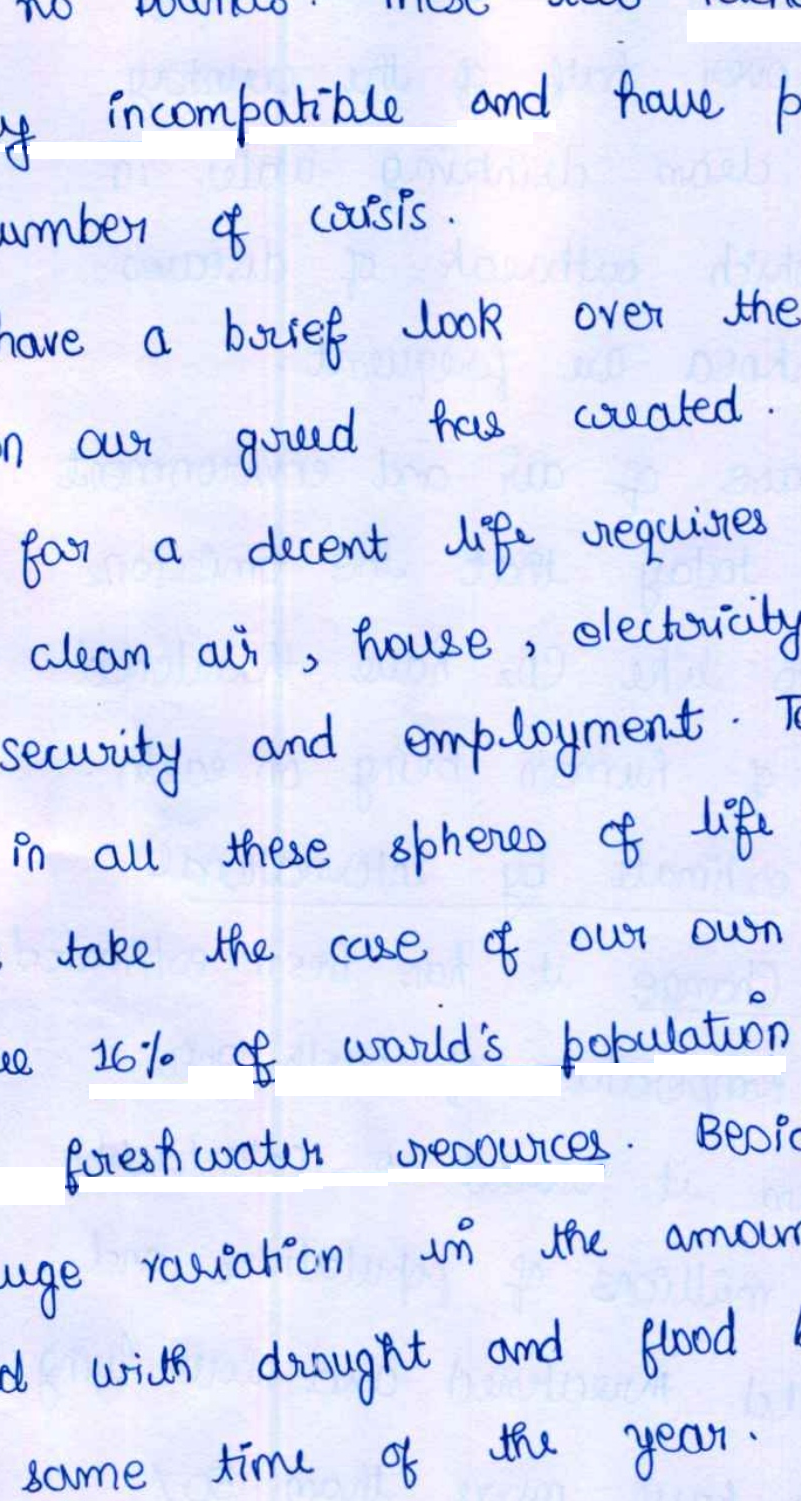 no bounds. These
incompatible and have
of crisis.
have a brief look over the
our greed has created.
for a decent life requires
clean air, house, electricity
security and employment.
in all these spheres of life
take the case of our own
16% of world's population
freshwater resources.
variation in the
with drought and flood
same time of the year.